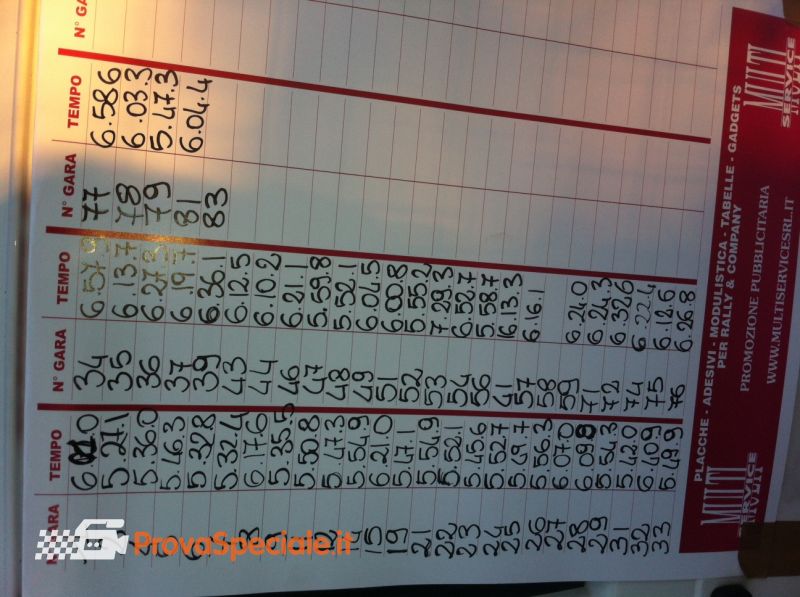 N° GARA TEMPO N° GARA TEMPO N° GARA TEMPO N° GA
34 6.57.9 77 6.58.6
5.27.1 35 6.13.7 78 6.03.3
5.36.0 36 6.27.3 79 5.47.3
5.46.3 37 6.19.7 81 6.04.4
5.32.8 39 6.36.1 83
5.32.4 43 6.12.5
8 6.17.6 44 6.10.2
9 5.35.5 46 6.21.1
5.50.8 47 5.59.8
12 5.47.3 48 5.52.1
14 5.54.9 49 6.04.5
15 6.21.0 51 6.00.8
19 5.47.1 52 5.55.2
21 5.54.9 53 7.29.3
22 5.52.1 54 6.52.7
23 5.45.6 56 5.58.7
24 5.52.7 41 16.13.3
25 5.49.7 57 6.16.1
26 5.56.3 58
27 6.07.0 59 6.24.0
28 6.09.8 71 6.24.3
29 5.54.3 72 6.32.6
31 5.42.0 74 6.22.4
32 6.40.9 75 6.12.6
33 5.49.9 76 6.26.8
MULTI SERVICE
PLACCHE - ADESIVI - MODULISTICA - TABELLE - GADGETS
PER RALLY & COMPANY
PROMOZIONE PUBBLICITARIA
WWW.MULTISERVICESRL.IT
MULTI SERVICE
ProvaSpeciale.it